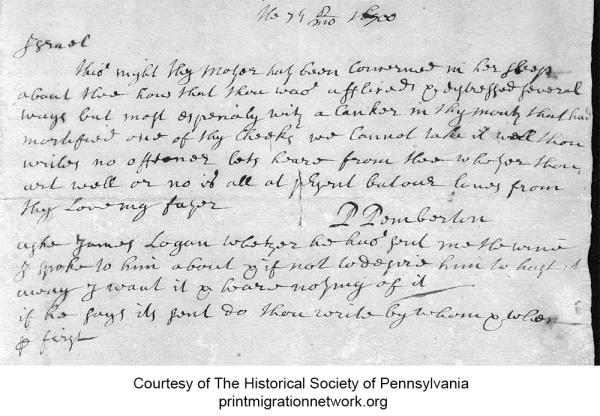 The 7th 8/mo 1700
Israel
This night thy Mother hath been Concerned in her sleep
about thee how that thou was afflicted & distressed severel
ways but most especialy with a Canker in thy mouth that had
mortified one of thy Cheeks we Cannot take it well thou
writes no oftener lets heare from thee whether thou
art well or no is all at psent but our loves from
thy Loveing father
P Pemberton
aske James Logan whether he hast sent me the wine
I spoke to him about & if not to desire him to hast it
away I want it & heare nothing of it
if he says its sent do thou write by whom & when
& first
Courtesy of The Historical Society of Pennsylvania
printmigrationnetwork.org